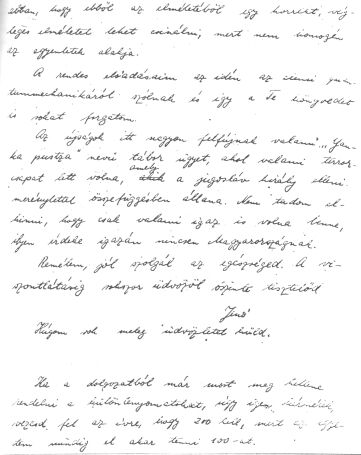 abban, hogy ebből az elméletéből egy korrekt, vég-
leges elméletet lehet csinálni, mert nem homogén
az egyenletek alakja.
A rendes előadásaim az idén az elemi quan-
tummechanikáról szólnak és így a Te könyvedet
is sokat forgatom.
Az újságok itt nagyon felfújnak valami "Jan-
ka puszta" nevű tábor ügyet, ahol valami terror-
csapat lett volna, amely a jugoszláv király elleni
merénylettel összefüggésben állana. Nem tudom el-
hinni, hogy csak valami igaz is volna benne,
ilyen érdeke igazán nincsen Magyarországnak.
Remélem, jól szolgál az egészséged. A vi-
szontlátásig sokszor üdvözöl őszinte tisztelőd
Jenő
Húgom sok meleg üdvözletet küld.
Ha a dolgozatból már most meg kellene
rendelni a különlenyomatokat, úgy igen
vezesd fel az ívre, hogy 200 kell, mert az
tem mindig el akar tenni 100-at.